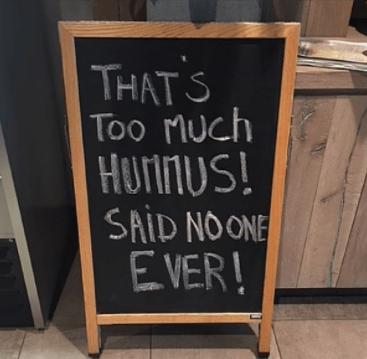 THAT'S
Too Much
HUMMUS!
SAiD NO ONE
EVER!